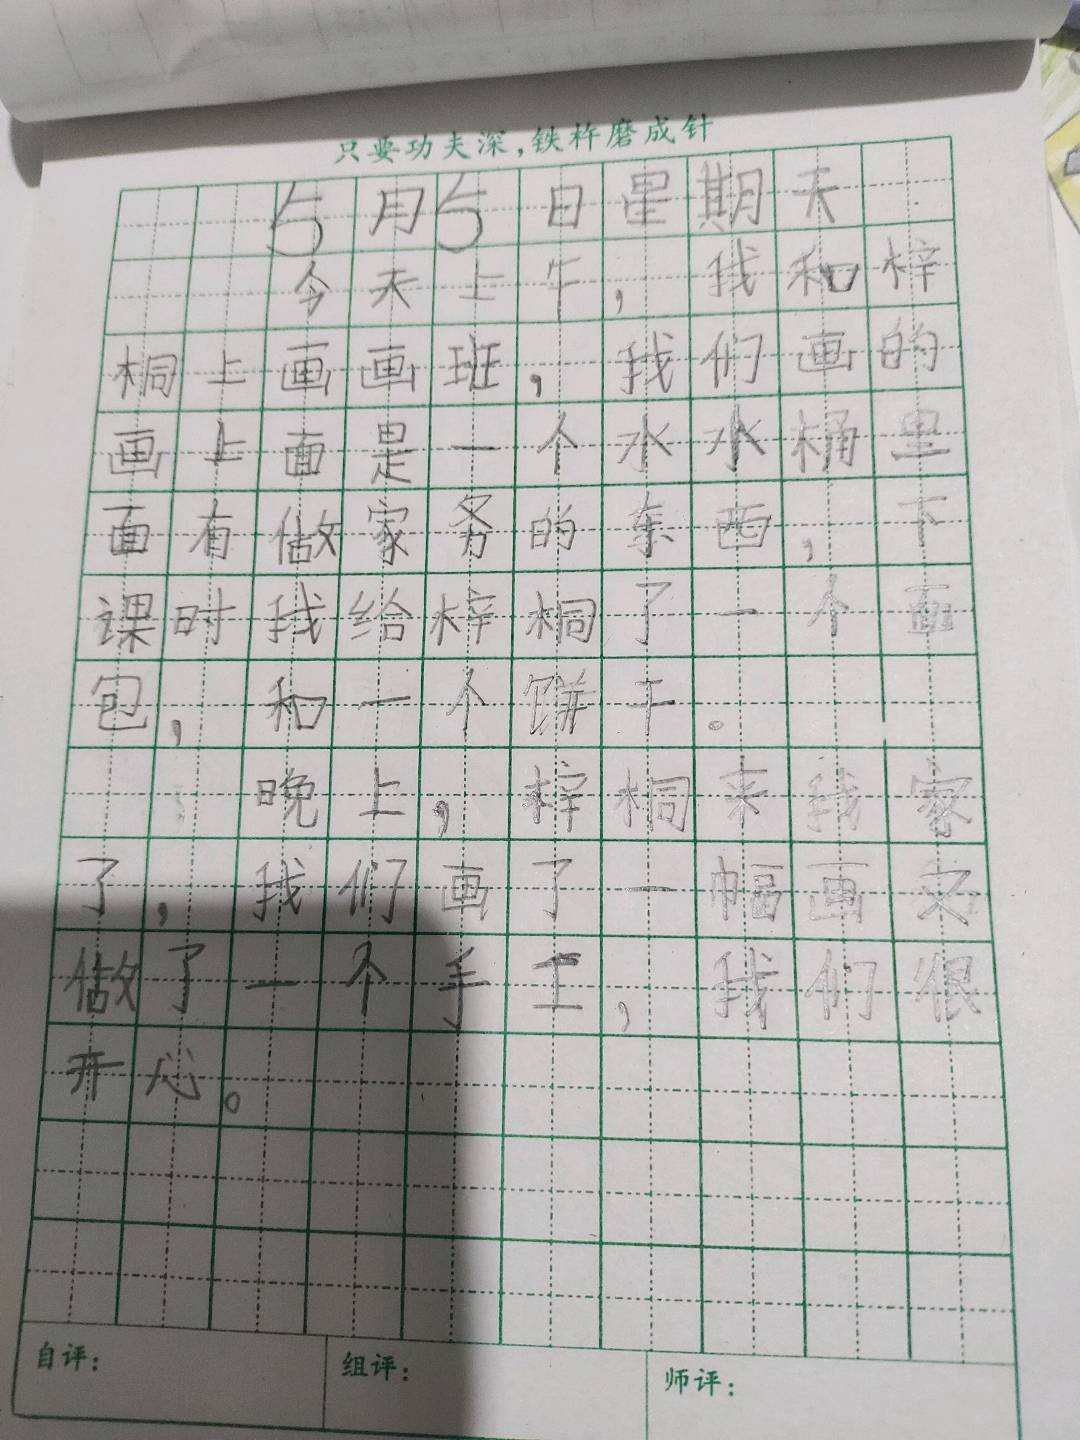 只要功夫深,铁杵磨成针
5月5日星期天
今天上午,我和梓
桐上画画班,我们画的
画上面是一个水水桶里
面有做家务的东西,下
课时我给梓桐了一个面
包,和一个饼干。
晚上,梓桐来我家
了,我们画了一幅画又
做了一个手工,我们很
开心。
自评: 组评: 师评: